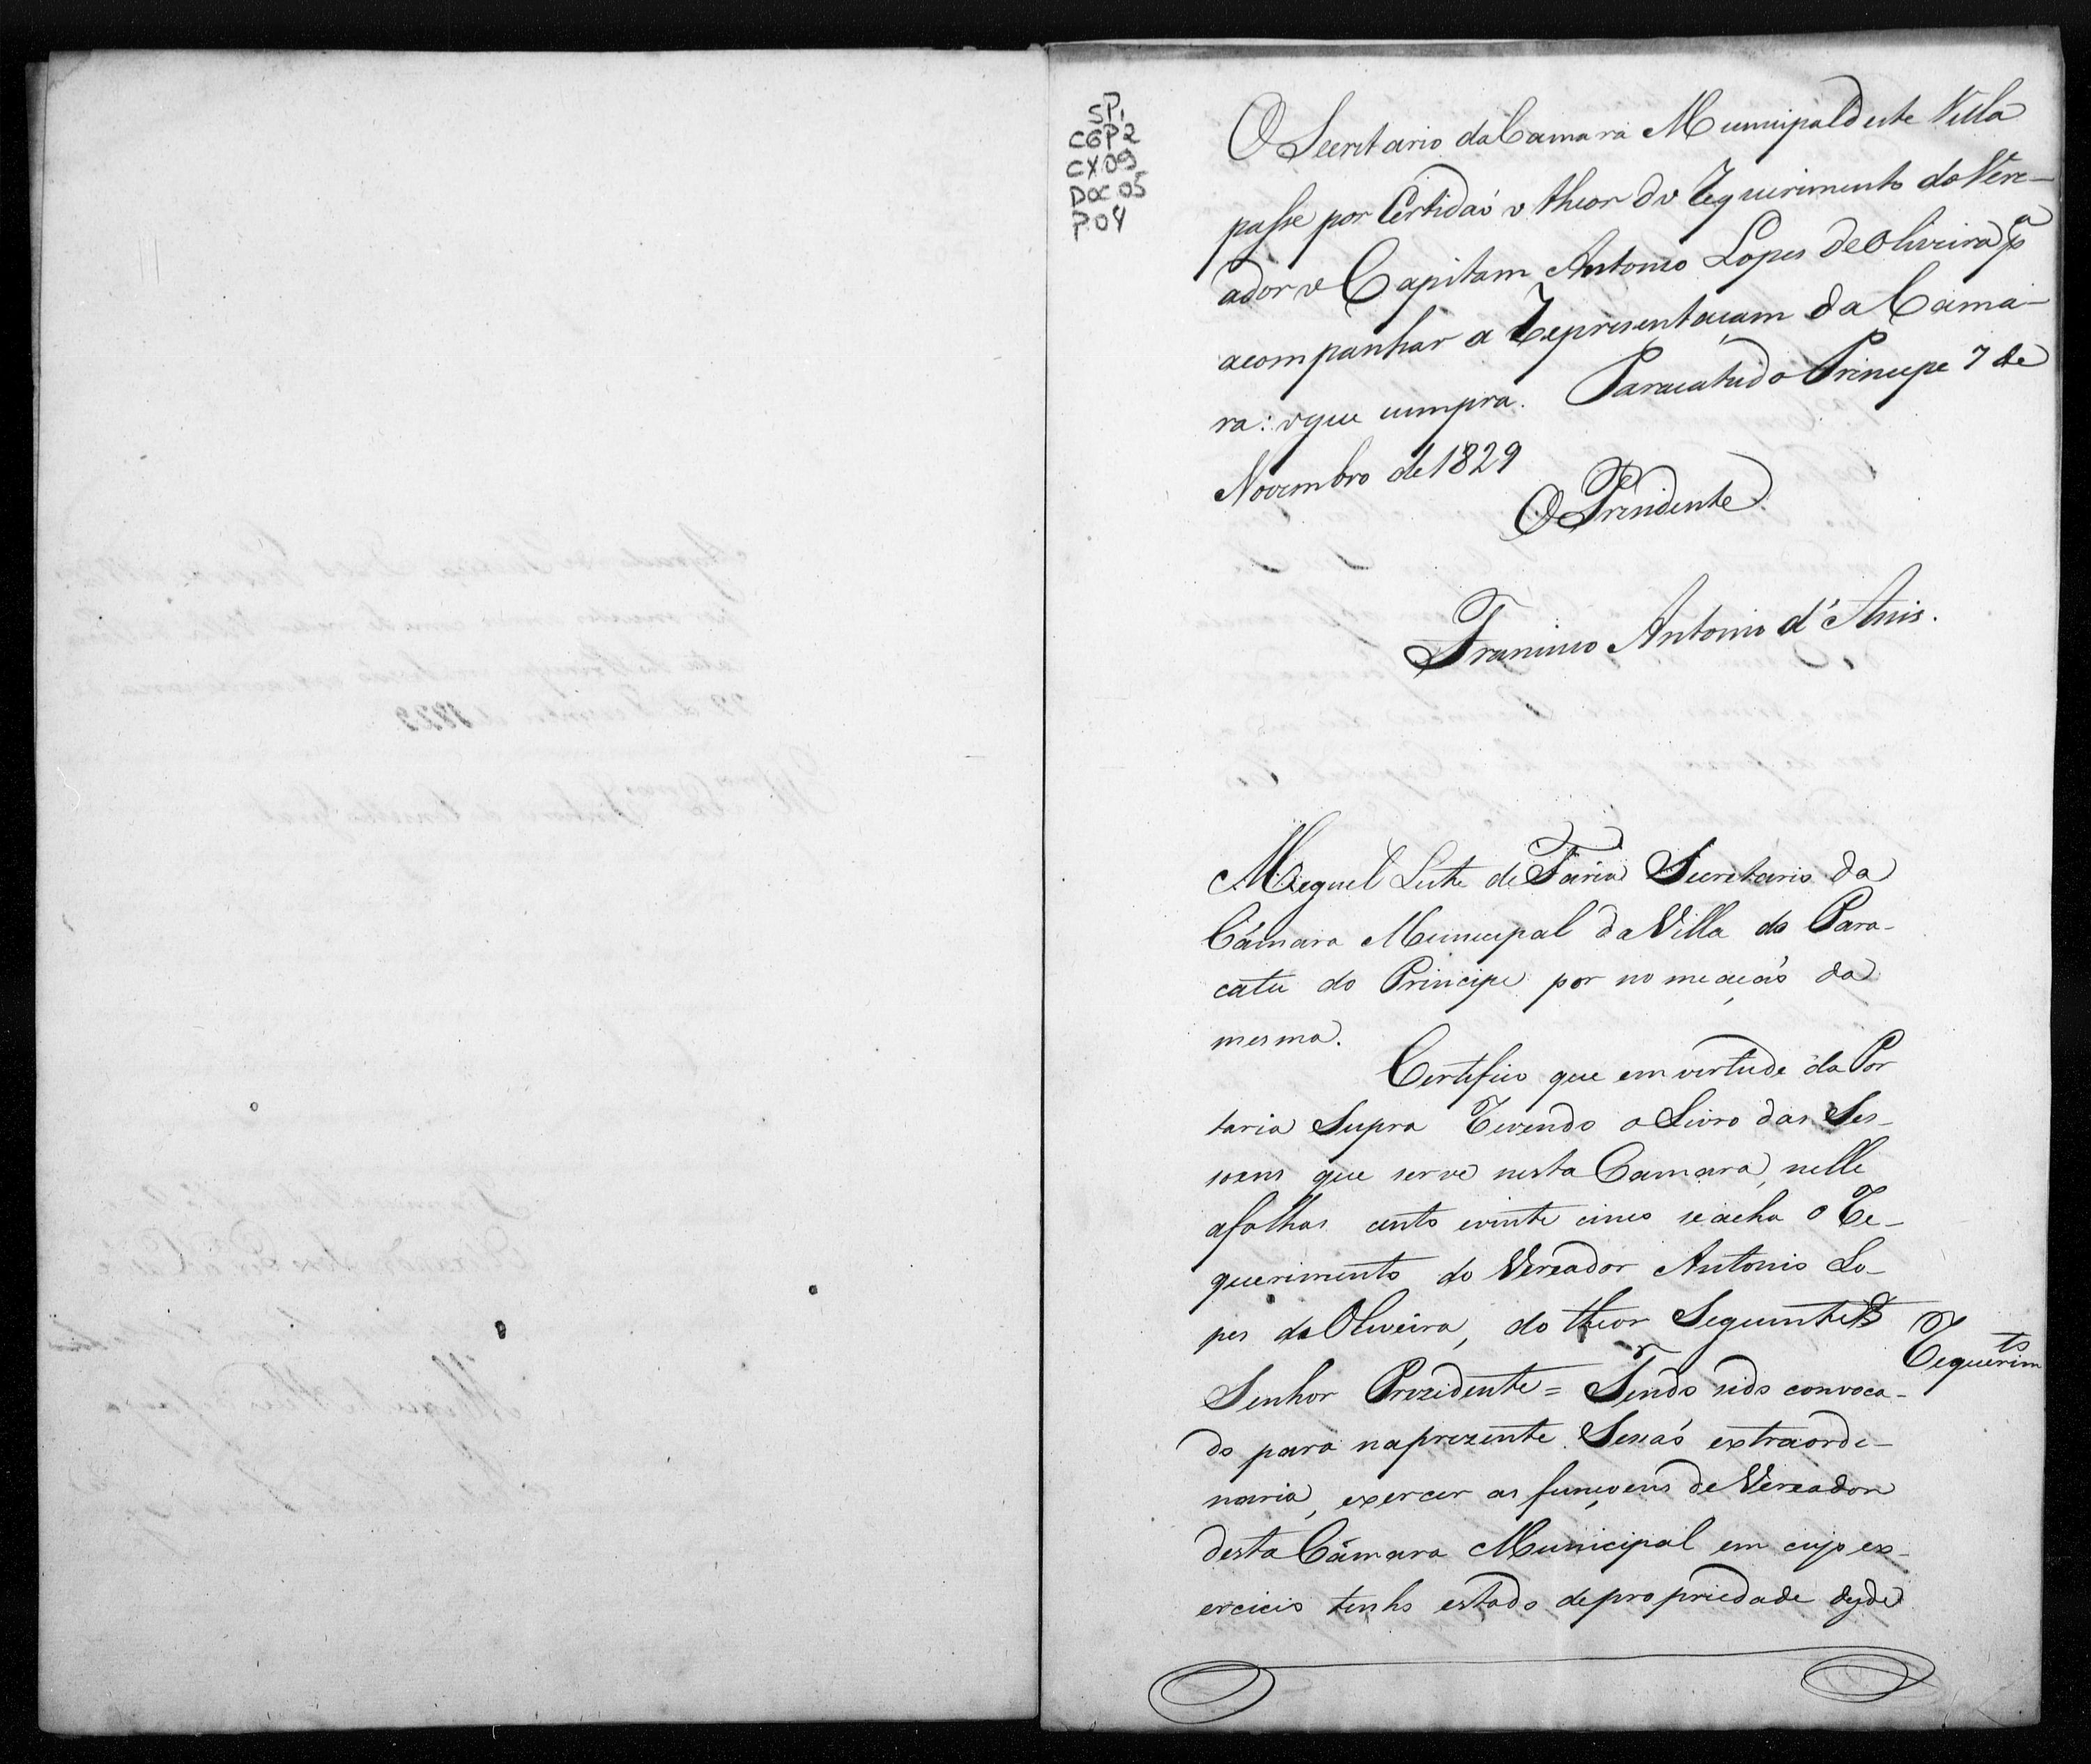 SP,
CGP2
CX 09
DOC 05
P. 04
O Secretario da Camara Municipal deste Villa
passe por Certidaõ o theor do Requerimento do Vere-
ador o Capitam Antonio Lopes de Oliveira pª
acompanhar a Representaçam da Cama-
ra: o que cumpra. Paracatu do Principe 7 de
Novembro de 1829
O Prezidente
Francisco Antonio d'Assis.
Miguel Leite de Faria Secretario da
Câmara Municipal da Villa do Para-
catu do Principe por nomeaçaõ da
mesma.
Certifico que em virtude da Por
taria Supra revendo o Livro das Ses-
soens que serve nesta Camara, nelle
afolhas cento evinte cinco se acha o Re-
querimento do Vereador Antonio Lo-
pes de Oliveira, do theor Seguinte
Requerimto
Senhor Prezidente = Tendo sido convoca-
do para naprezente Sessaõ extraorde-
naria, exercer as funçoens de Vereador
desta Câmara Municipal em cujo ex-
ercicio tenho estado depropriedade desde